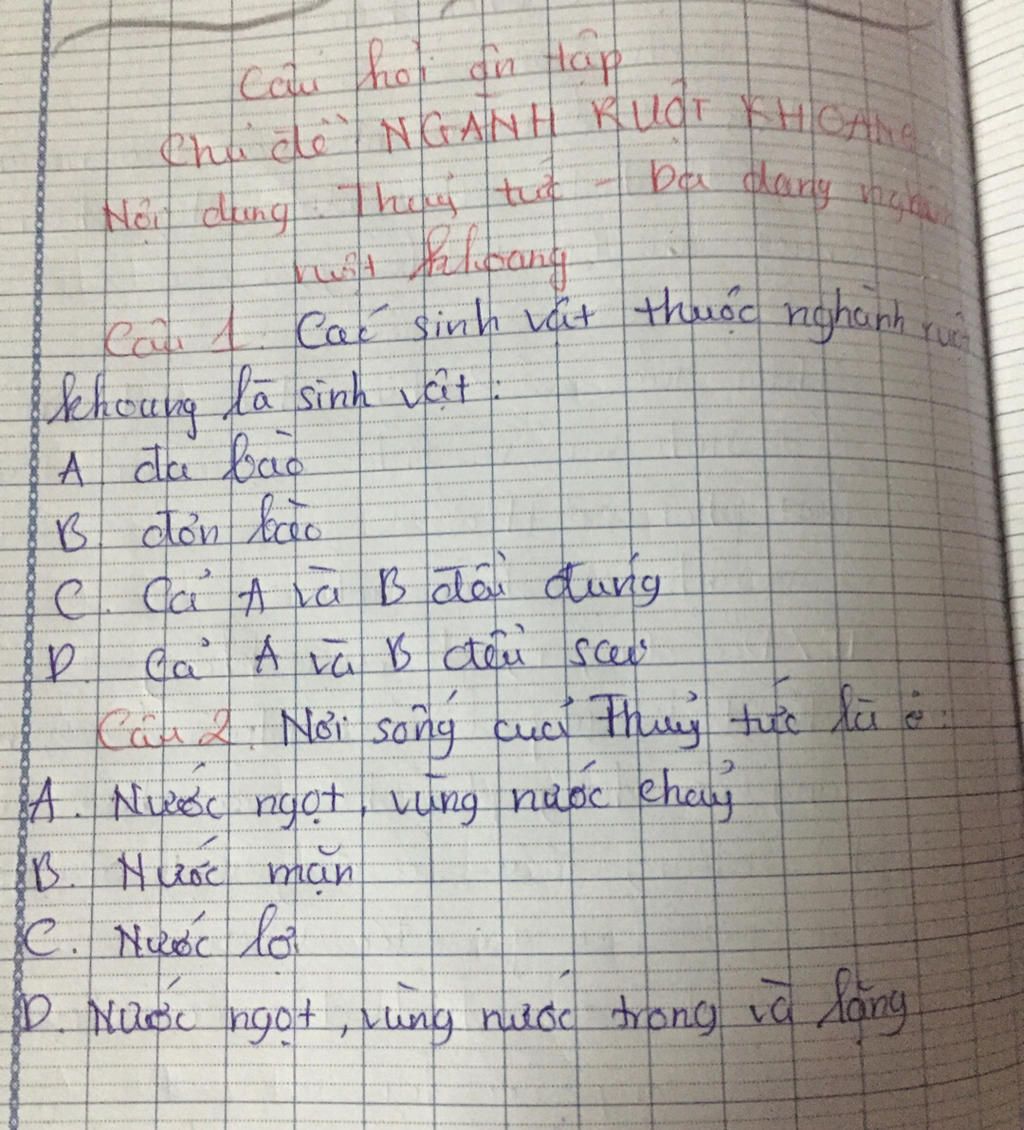 Câu hỏi ôn tập
Chủ đề NGÀNH RUỘT KHOANG
Nội dung: Thuỷ tức - Đa dạng nghành
ruột khoang
Câu 1. Các sinh vật thuộc nghành ruột
khoang là sinh vật:
A đa bào
B đơn bào
C. Cả A và B đều đúng
D. Cả A và B đều sai
Câu 2. Nơi sống của Thuỷ tức là ở:
A. Nước ngọt, vùng nước chảy
B. Nước mặn
C. Nước lợ
D. Nước ngọt, vùng nước trong và lặng